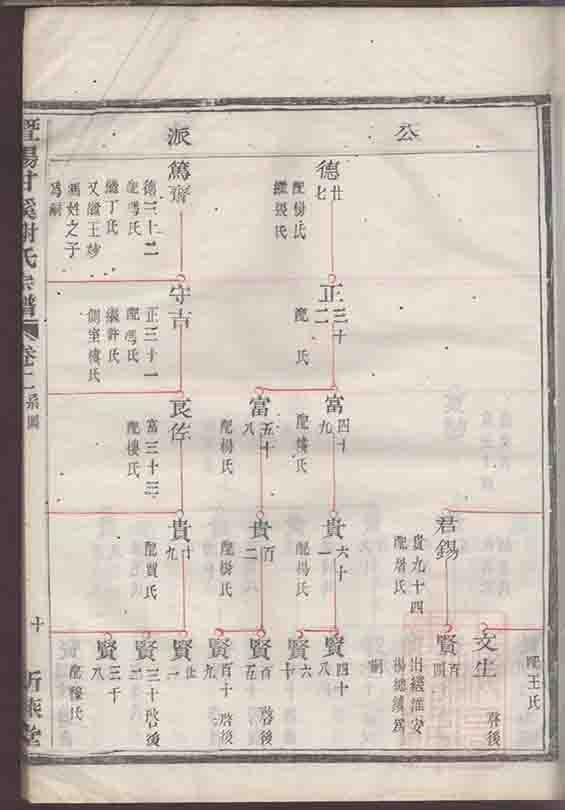 公
派
德
廿七
配楊氏
繼張氏
篤齋
德三十二
配馮氏
繼丁氏
又繼王妙
馮姓之子
爲嗣
正
三十二
配 氏
守吉
正三十一
配馮氏
繼許氏
側室樓氏
富
四十九
配樓氏
富
五十八
配楊氏
良佐
富三十三
配樓氏
君錫
貴九十四
配屠氏
貴
六十一
配楊氏
貴
百二
配樹氏
貴
十九
配賈氏
文生
啓後
配王氏
賢
百四
出繼淮安
楊總績爲
嗣
賢
四十八
賢
六十
賢
百五十
啓後
賢
百十九
啓後
賢
廿一
賢
三十二
啓後
賢
三十八
配楊氏
暨陽甘溪謝氏宗譜
卷二
系圖
十